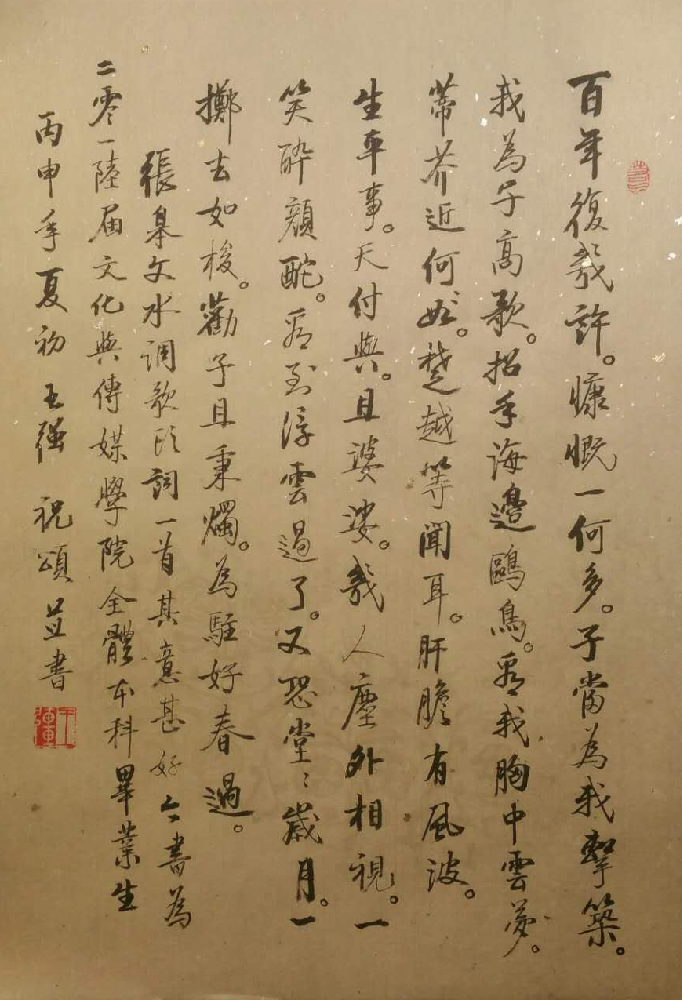 百年復幾許。慷慨一何多。子當為我擊築。
我為子高歌。招手海邊鷗鳥。看我胸中雲夢。
蒂芥近何如。楚越等閒耳。肝膽有風波。
生平事。天付與。且婆娑。幾人塵外相視。一
笑醉顏酡。看到浮雲過了。又恐堂堂歲月。一
擲去如梭。勸子且秉燭。為駐好春過。
張皋文水調歌頭詞一首其意甚好今書為
二零一陸届文化與傳媒學院全體本科畢業生
丙申年夏初 王强 祝頌並書